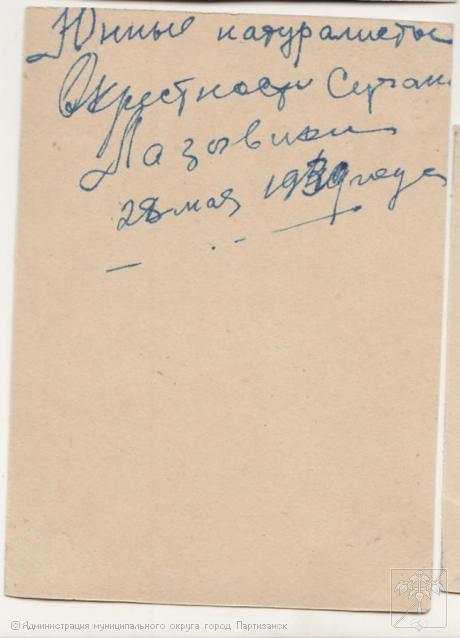 Юнные натуралисты
Окрестности Сучана
Лазовики
28 мая 19 года
© Администрация муниципального округа город Партизанск